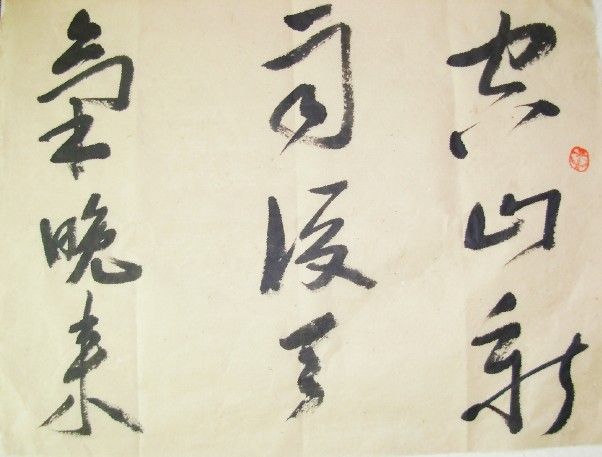 空山新
雨後天
氣晚来